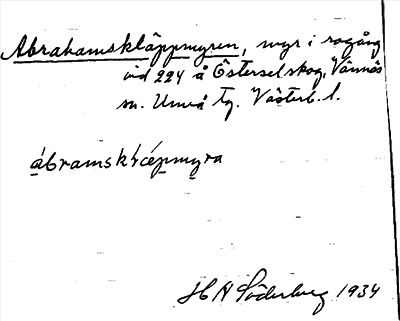 Abrahamskläppmyren, myr i rågång
vid 224 å Österselskog, Vännäs
sn. Umeå tg. Västerb. l.
ábramskḷépmyra
H A Söderberg 1934